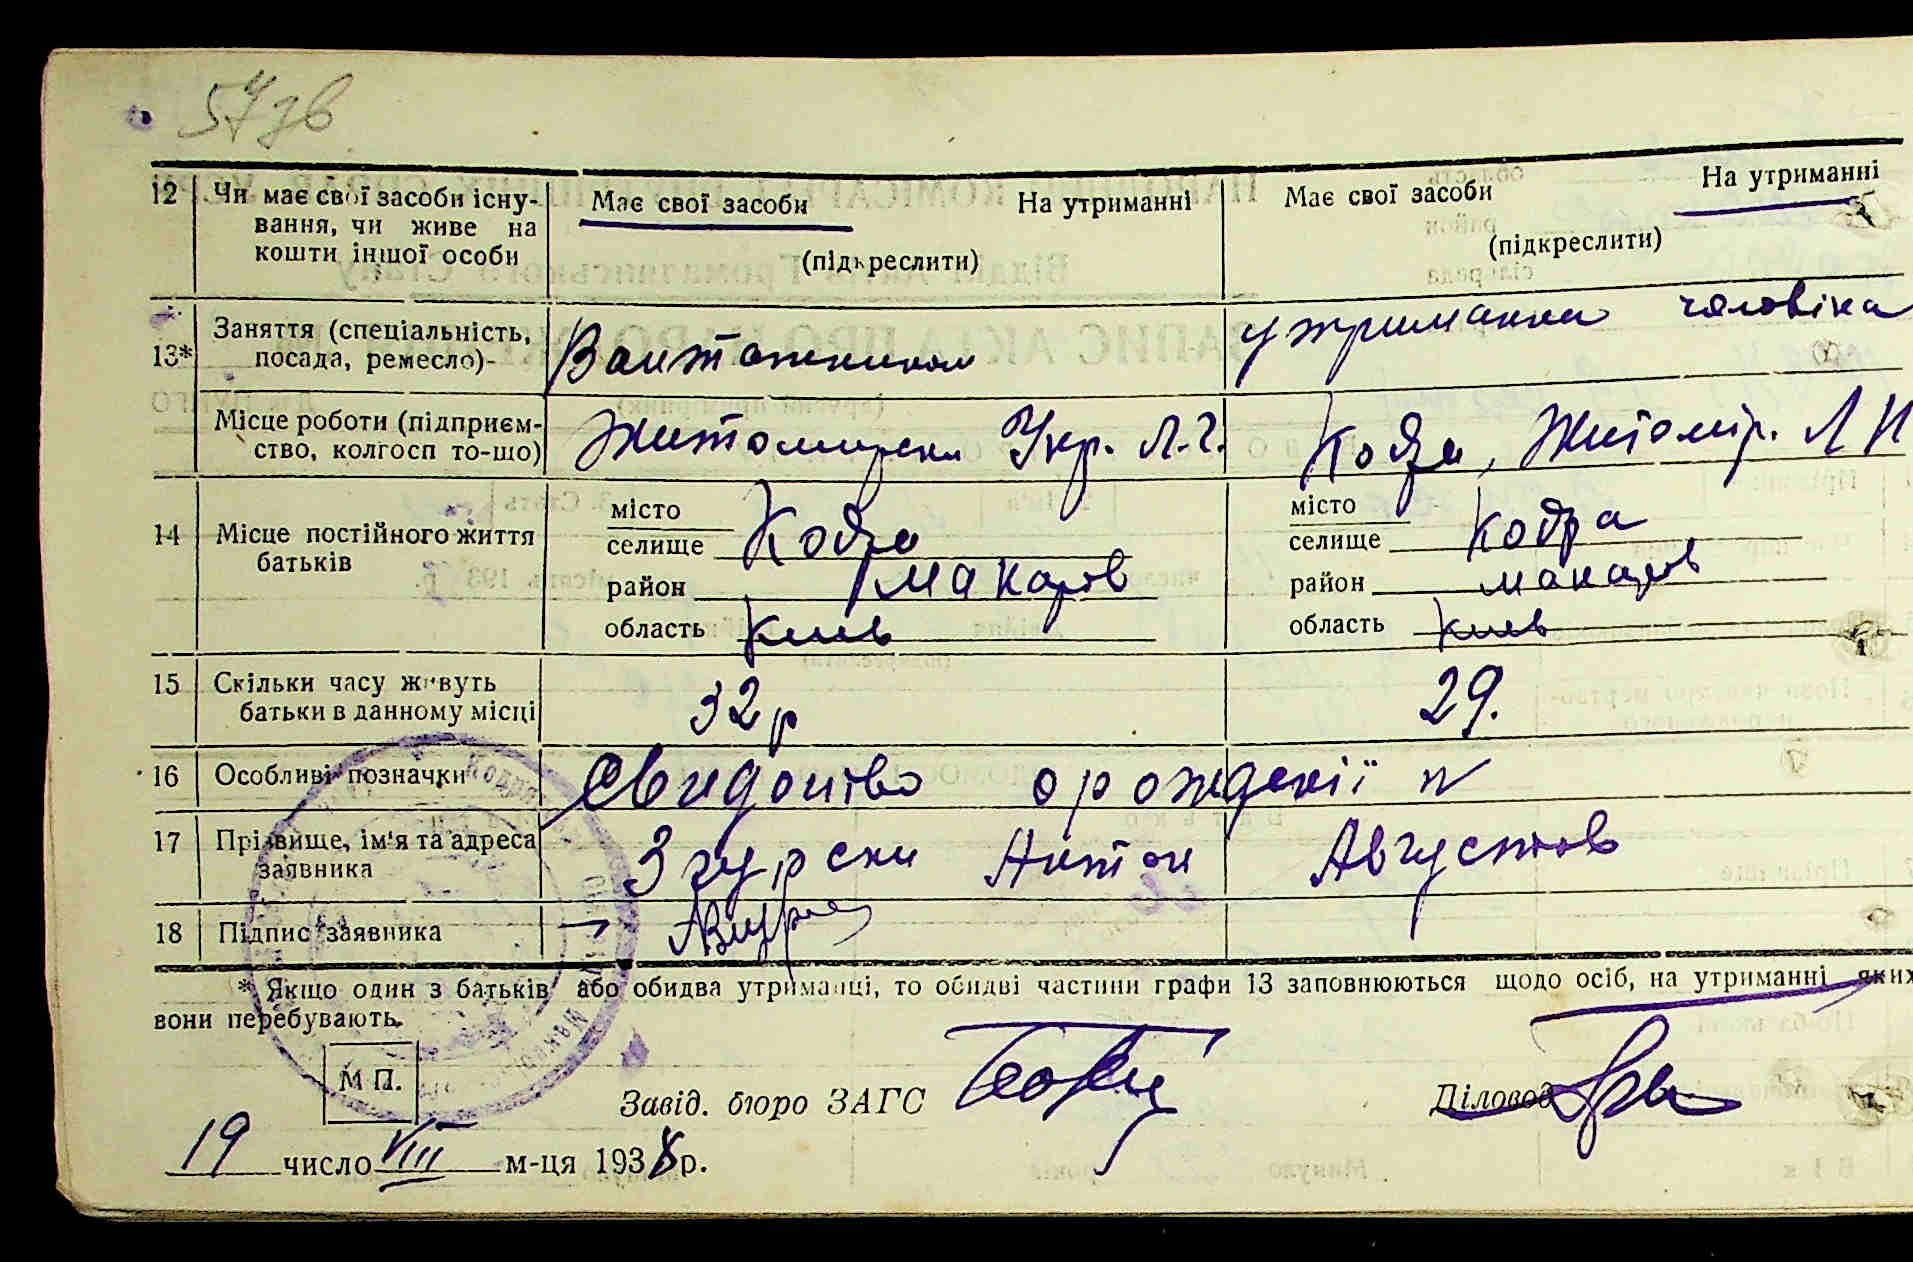 57зв
12 Чи має свої засоби існу-
вання, чи живе на
кошти іншої особи
Має свої засоби На утриманні
(підкреслити)
Має свої засоби На утриманні
(підкреслити)
13* Заняття (спеціальність,
посада, ремесло)-
Вантажником
утриманка чоловіка
Місце роботи (підприєм-
ство, колгосп то-що)
Житомирски Укр. Л.
Кодра, Житомір. Л
14 Місце постійного життя
батьків
місто
селище Кодра
район Макарів
область Киев
місто
селище Кодра
район Макарів
область Киев
15 Скільки часу живуть
батьки в данному місці
32р
29.
16 Особливі позначки
Свидоцтво о рожденії N
17 Прізвище, ім'я та адреса
заявника
Згурски Антон Августов
18 Підпис заявника
* Якщо один з батьків або обидва утриманці, то обидві частини графи 13 заповнюються щодо осіб, на утриманні яких
вони перебувають.
М П.
Завід. бюро ЗАГС
Діловод
19 число VIII м-ця 1938р.